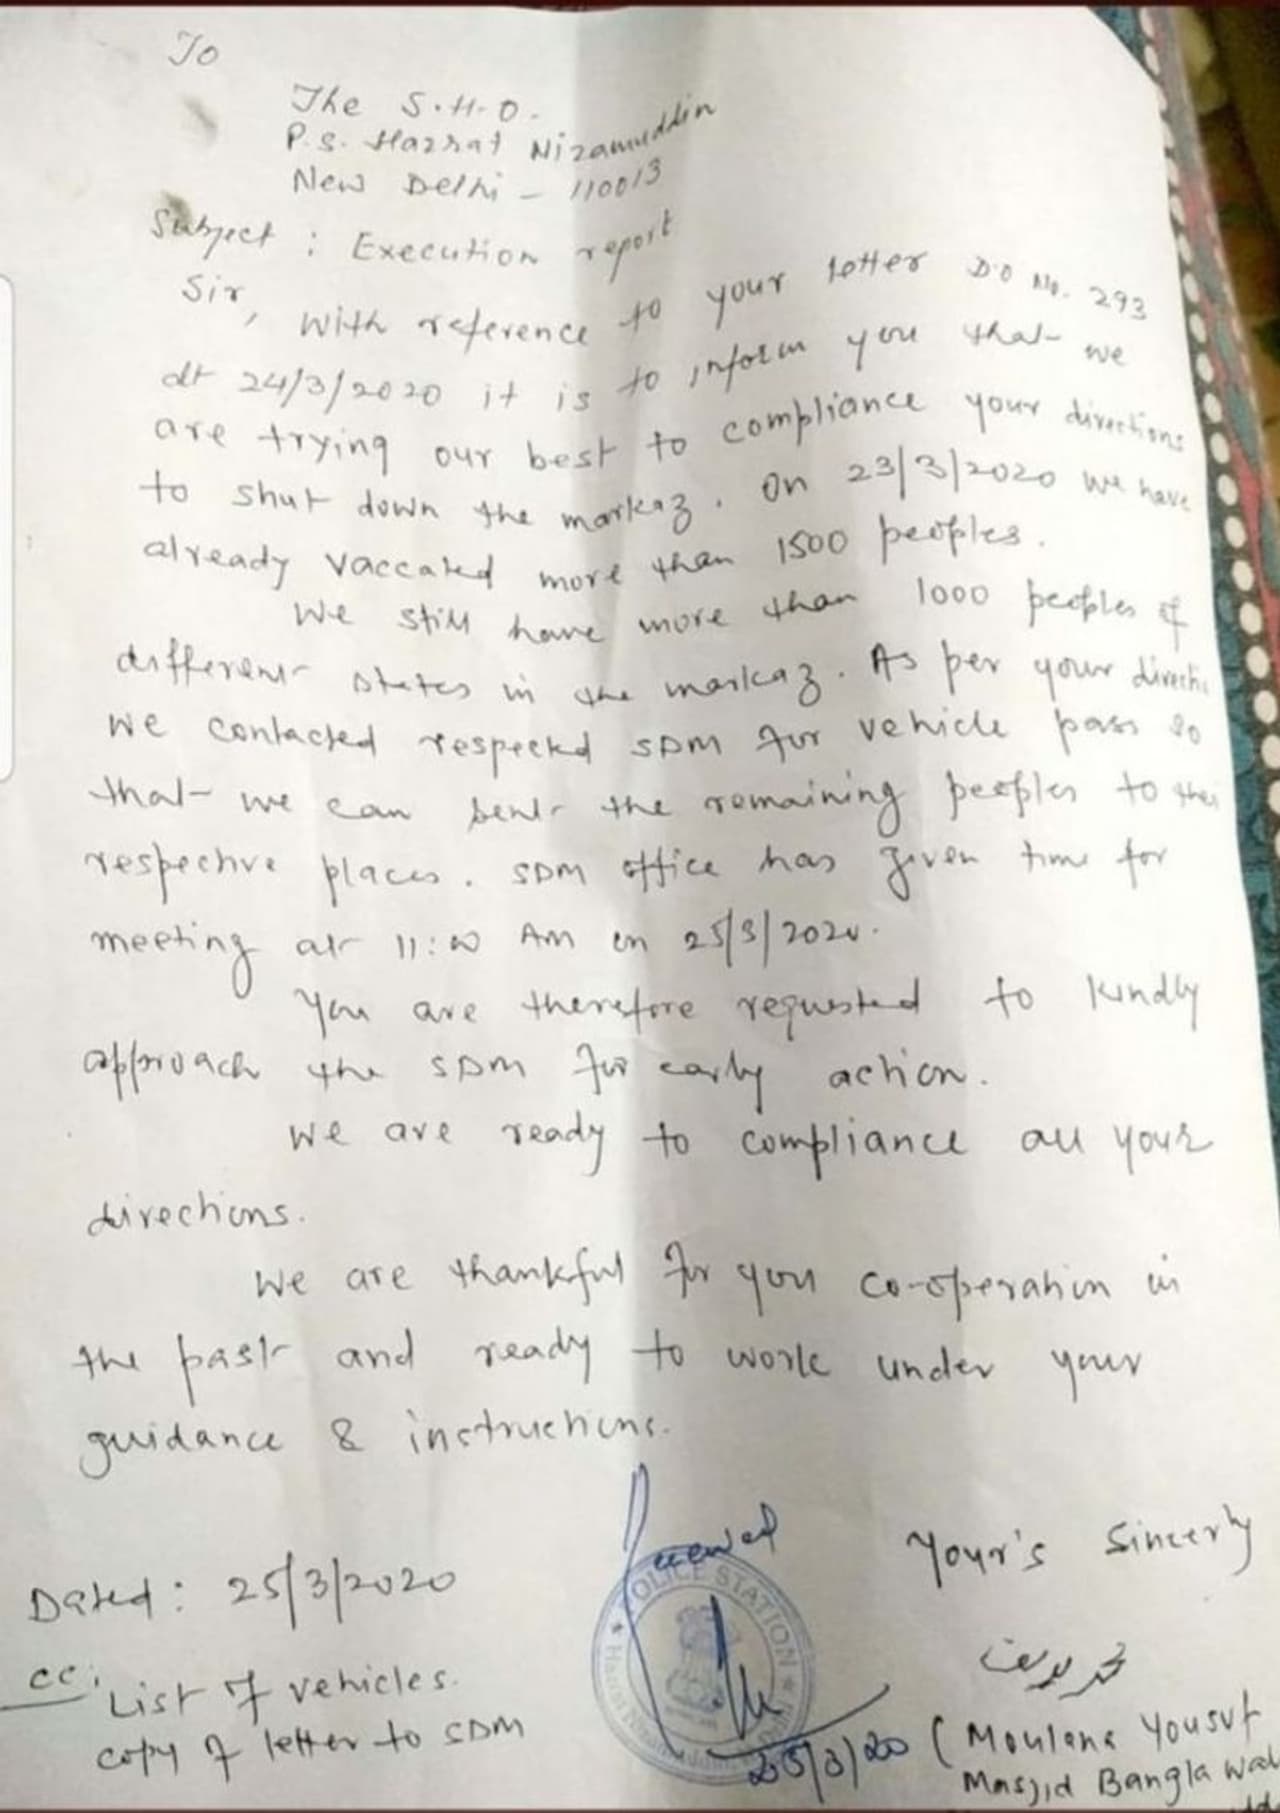 To
The S.H.O.
P.S. Hazrat Nizamuddin
New Delhi - 110013
Subject : Execution report
Sir,
With reference to your letter D.O No. 293
dt 24/3/2020 it is to inform you that we
are trying our best to compliance your directions
to shut down the markaz. On 23/3/2020 we have
already vaccated more than 1500 peoples.
We still have more than 1000 peoples of
different states in the markaz. As per your directi
we contacted respected SDM for vehicle pass so
that we can sent the remaining peoples to thei
respective places. SDM office has given time for
meeting at 11:00 AM on 25/3/2020.
You are therefore requested to kindly
approach the SDM for early action.
We are ready to compliance all your
directions.
We are thankful for you co-operation in
the past and ready to work under your
guidance & instructions.
Your's Sincerly
Dated : 25/3/2020
POLICE STATION
محمد یوسف
cc: List of vehicles.
copy of letter to SDM
25/3/20
(Moulana Yousuf
Masjid Bangla Wal